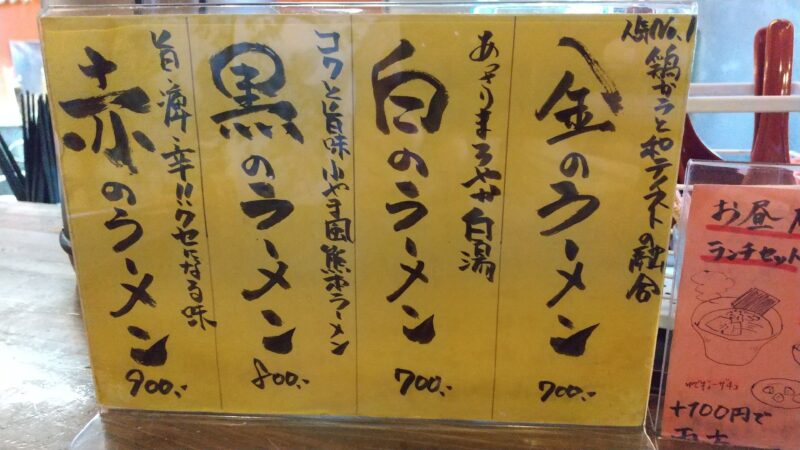 人気No.1
鶏ガラと和テイストの融合
金のラーメン
700.-
あっさりまろやか白湯
白のラーメン
700.-
コクと旨味小やま風熊本ラーメン
黒のラーメン
800.-
旨・痺・辛!!クセになる味
赤のラーメン
900.-
お昼
ランチセット
+100円で